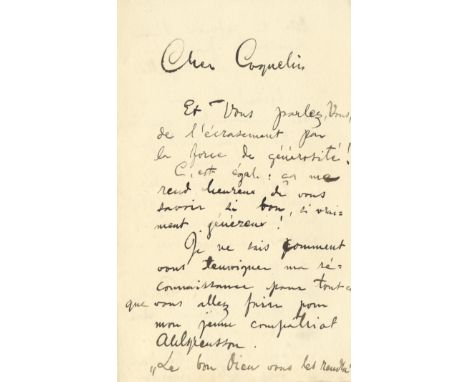 Cher Coquelin
Et Vous parlez, Vous,
de l'écrasement par
la force de générosité!
C'est égal: ça me
rend heureux de vous
savoir si bon, si vrai-
ment généreux!
Je ne sais comment
vous temoigner ma ré-
connaissance pour tout ce
que vous allez faire pour
mon jeune compatriot
„Le bon Dieu vous les rendra